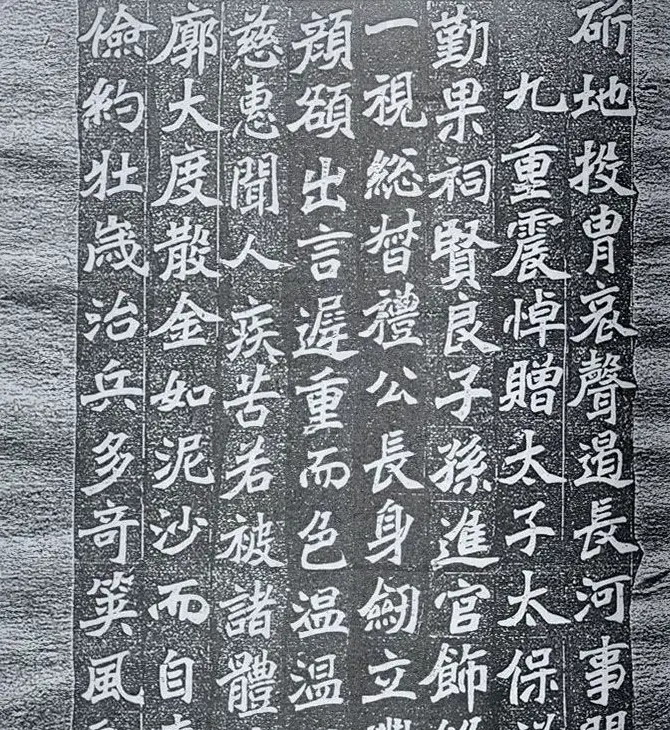 斫地投胄哀聲遏長河事
九重震悼贈太子太保
勤果祠賢良子孫進官飾
一視總督禮公長身劒立
顔額出言遲重而色温温
慈惠聞人疾苦若被諸體
廓大度散金如泥沙而自
儉約壯歲治兵多奇筴風